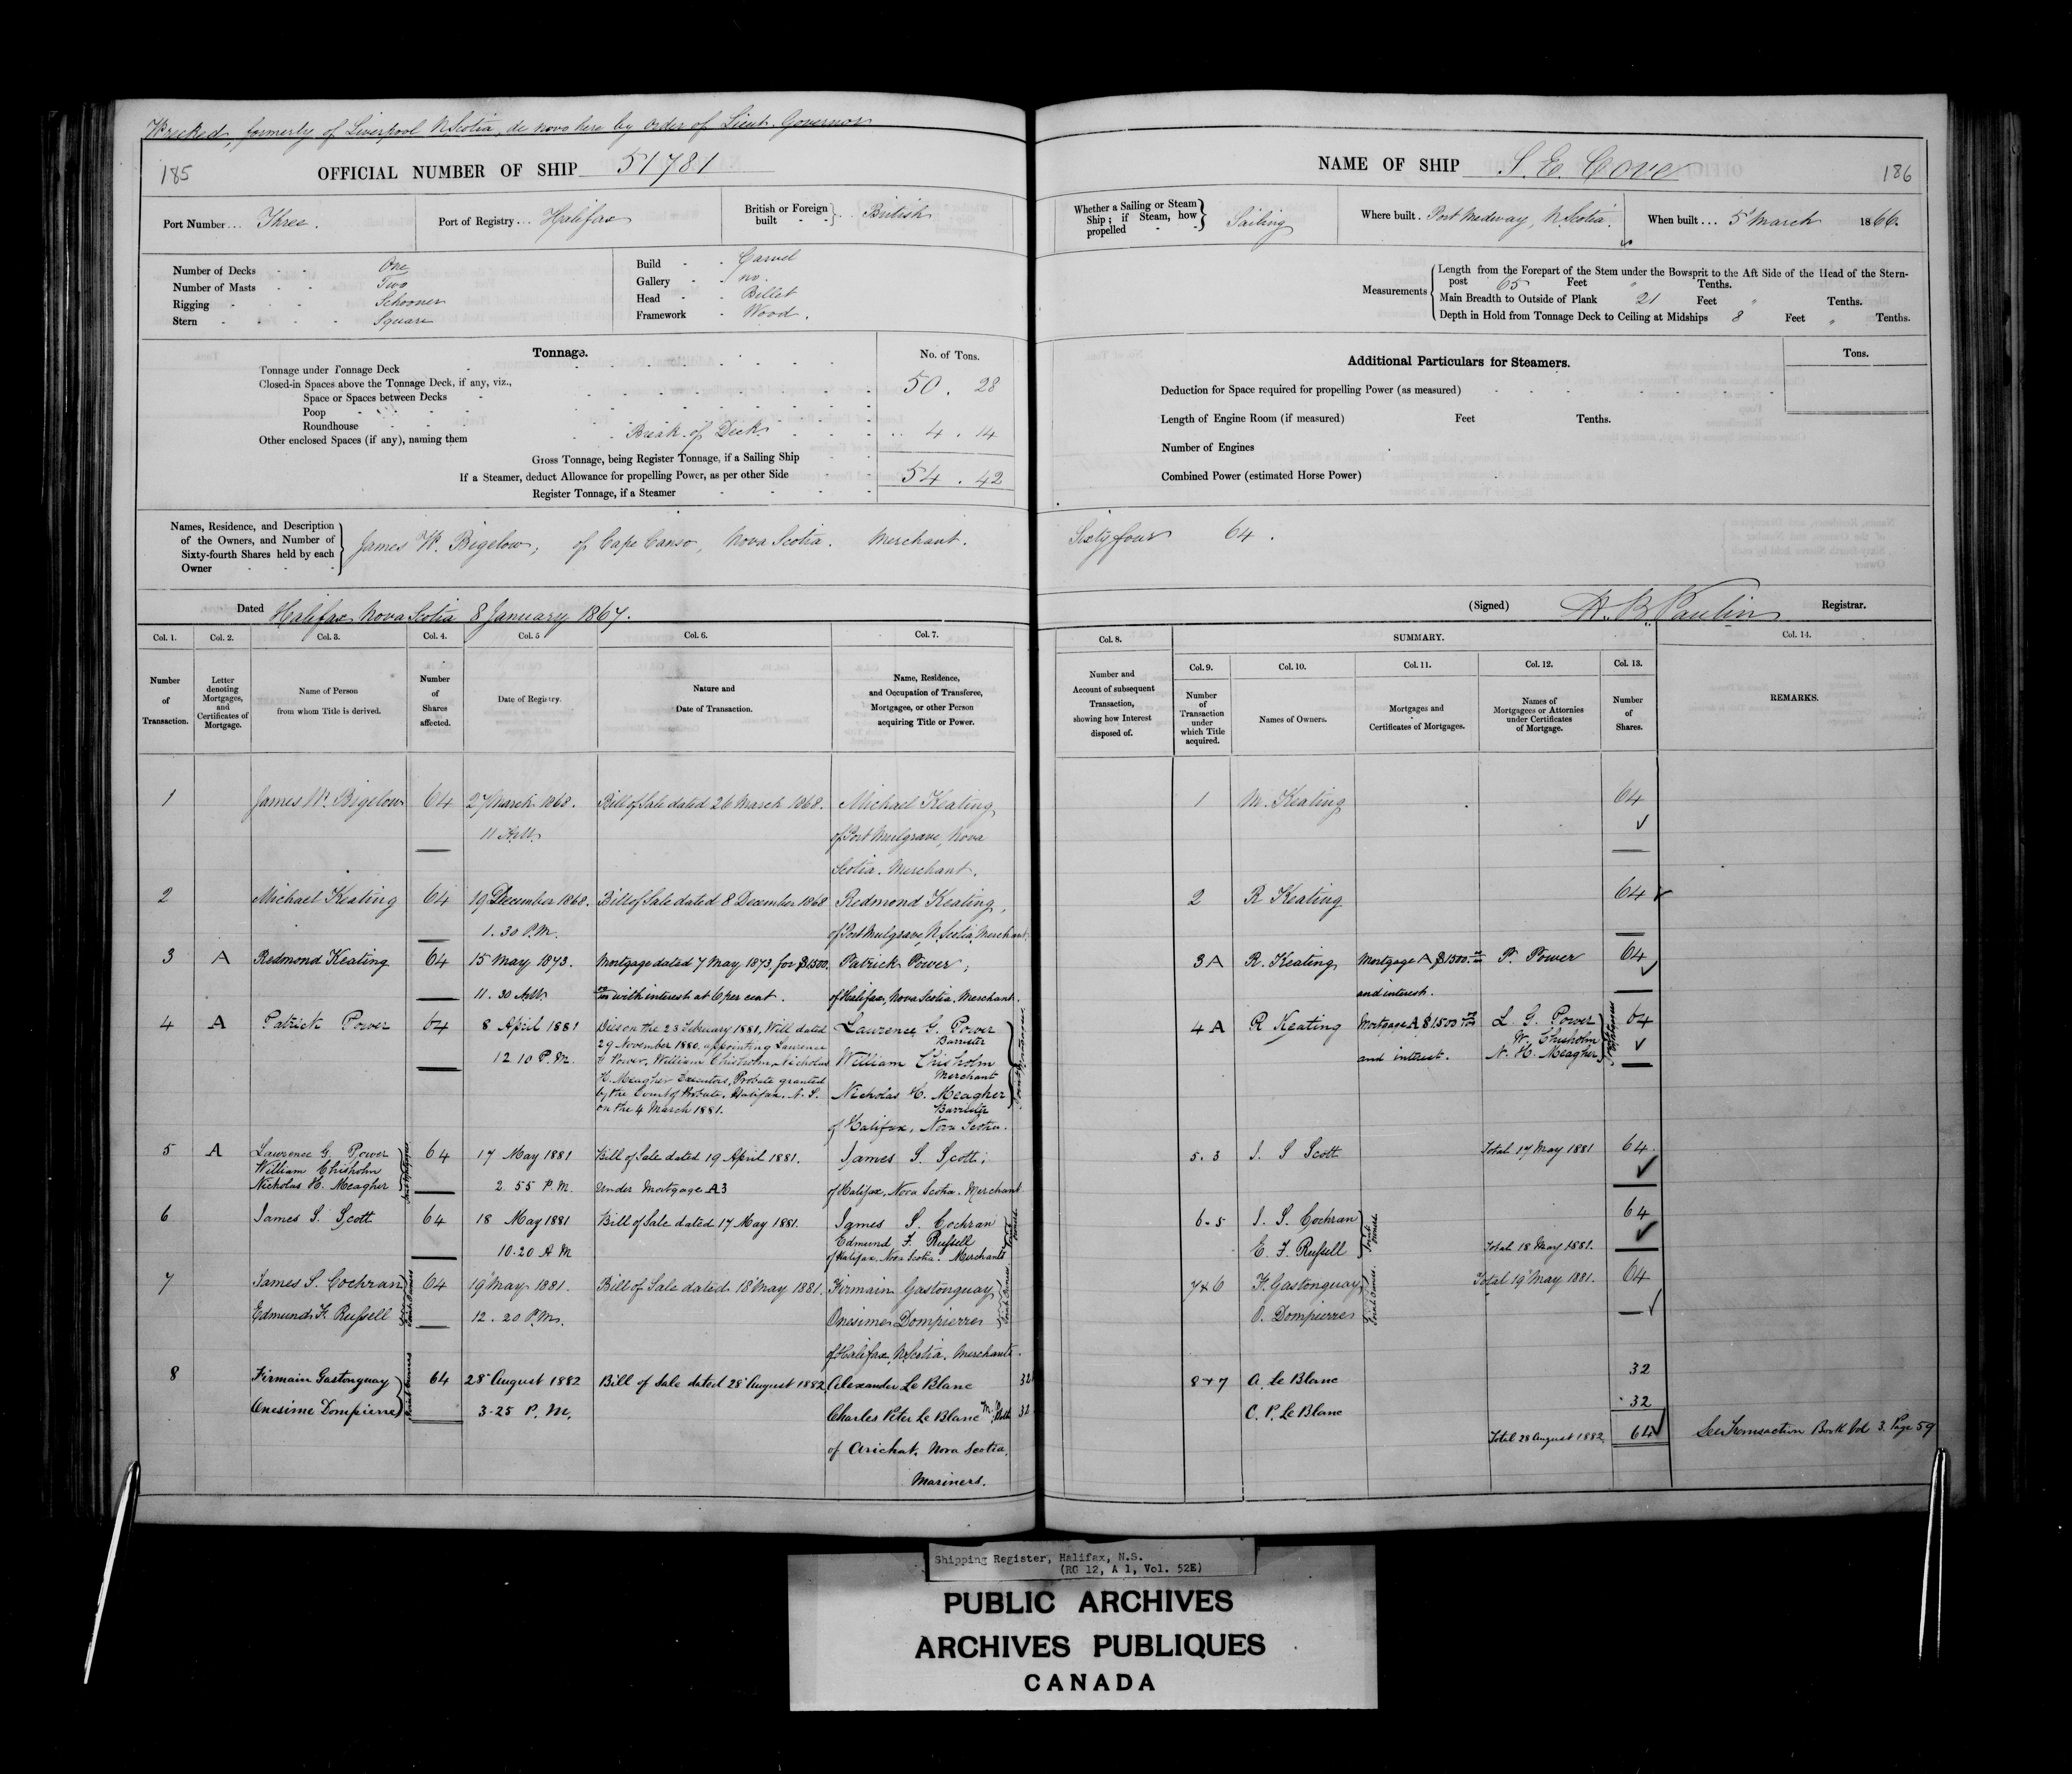 Wrecked, formerly of Liverpool N Scotia, de novo here by order of Lieut. Governor
185
OFFICIAL NUMBER OF SHIP 51781
Port Number... Three.
Port of Registry... Halifax
British or Foreign built - - } .. British
Number of Decks - - One
Number of Masts - - Two
Rigging - - - Schooner
Stern - - - - Square
Build - - Carvel
Gallery - - no.
Head - - Billet
Framework - Wood.
Tonnage.
No. of Tons.
Tonnage under Tonnage Deck
Closed-in Spaces above the Tonnage Deck, if any, viz.,
50 . 28
Space or Spaces between Decks
Poop
Roundhouse
Other enclosed Spaces (if any), naming them Break of Deck 4 . 14
Gross Tonnage, being Register Tonnage, if a Sailing Ship
If a Steamer, deduct Allowance for propelling Power, as per other Side
54 . 42
Register Tonnage, if a Steamer
Names, Residence, and Description
of the Owners, and Number of
Sixty-fourth Shares held by each
Owner
James W. Bigelow, of Cape Canso, Nova Scotia. Merchant.
Dated Halifax Nova Scotia 8 January 1867.
Col. 1. Col. 2. Col. 3. Col. 4. Col. 5 Col. 6. Col. 7.
Number of Transaction.
Letter denoting Mortgages, and Certificates of Mortgage.
Name of Person from whom Title is derived.
Number of Shares affected.
Date of Registry.
Nature and Date of Transaction.
Name, Residence, and Occupation of Transferee, Mortgagee, or other Person acquiring Title or Power.
1 James W. Bigelow 64 27 March 1868. Bill of Sale dated 26 March 1868. Michael Keating
11 A.M. of Port Mulgrave, Nova
Scotia. Merchant.
2 Michael Keating 64 19 December 1868. Bill of Sale dated 8 December 1868 Redmond Keating,
1. 30 P.M. of Port Mulgrave, N. Scotia, Merchant.
3 A Redmond Keating 64 15 May 1873. Mortgage dated 7 May 1873, for $1500. Patrick Power,
11. 30 A.M. with interest at 6 per cent. of Halifax, Nova Scotia. Merchant.
4 A Patrick Power 64 8 April 1881 Dies on the 23 February 1881, Will dated Lawrence G. Power
29 November 1880, appointing Lawrence Barrister
12 10 P.M. G Power, William Chisholm, Nicholas William Chisholm
H. Meagher Executors, Probate granted Merchant
by the Court of Probate, Halifax, N. S. Nicholas H. Meagher
on the 4 March 1881. Barrister
of Halifax, Nova Scotia.
Joint Mortgagees
5 A Lawrence G. Power 64 17 May 1881 Bill of Sale dated 19 April 1881. James S. Scott,
William Chisholm
Nicholas H. Meagher 2 55 P.M. Under Mortgage A3 of Halifax, Nova Scotia. Merchant
Joint Mortgagees
6 James S. Scott 64 18 May 1881 Bill of Sale dated 17 May 1881. James S. Cochran
Edmund F. Russell
10.20 A M of Halifax, Nova Scotia. Merchants
Joint Owners
7 James S. Cochran 64 19 May 1881. Bill of Sale dated 18 May 1881. Firmain Gastonguay
Edmund F. Russell 12. 20 P.M. Onesime Dompierre
Joint Owners
of Halifax, N. Scotia. Merchants.
8 Firmain Gastonguay 64 28 August 1882 Bill of Sale dated 28 August 1882 Alexander Le Blanc 32
Onesime Dompierre 3-25 P. M. Charles Peter Le Blanc 32
Joint Owners
of Arichat, Nova Scotia,
Mariners.
NAME OF SHIP S. E. Cove
186
Whether a Sailing or Steam Ship; if Steam, how propelled - - } Sailing
Where built. Port Medway, N. Scotia.
When built... 5 March 1866.
Measurements
Length from the Forepart of the Stem under the Bowsprit to the Aft Side of the Head of the Stern-
post 65 Feet " Tenths.
Main Breadth to Outside of Plank 21 Feet " Tenths.
Depth in Hold from Tonnage Deck to Ceiling at Midships 8 Feet " Tenths.
Additional Particulars for Steamers.
Tons.
Deduction for Space required for propelling Power (as measured)
Length of Engine Room (if measured) Feet Tenths.
Number of Engines
Combined Power (estimated Horse Power)
Sixty four 64.
(Signed) Registrar.
Col. 8. SUMMARY. Col. 14.
Col. 9. Col. 10. Col. 11. Col. 12. Col. 13.
Number and Account of subsequent Transaction, showing how Interest disposed of.
Number of Transaction under which Title acquired.
Names of Owners.
Mortgages and Certificates of Mortgages.
Names of Mortgagees or Attornies under Certificates of Mortgage.
Number of Shares.
REMARKS.
1 M. Keating 64
2 R Keating 64
3 A R. Keating Mortgage A $1500. P. Power 64
and interest.
4 A R Keating Mortgage A $1500 L. G. Power 64
W. Chisholm
and interest. N. H. Meagher
5. 3 J. S Scott Total 17 May 1881 64
6-5 J. S. Cochran 64
E. F. Russell Total 18 May 1881.
Joint Owners
7 & 6 F. Gastonguay Total 19 May 1881. 64
O. Dompierre
Joint Owners.
8 & 7 A. le Blanc 32
C. P. Le Blanc 32
Total 28 August 1882 64 See Transaction Book Vol 3. Page 59
Shipping Register, Halifax, N.S.
(RG 12, A 1, Vol. 52E)
PUBLIC ARCHIVES
ARCHIVES PUBLIQUES
CANADA